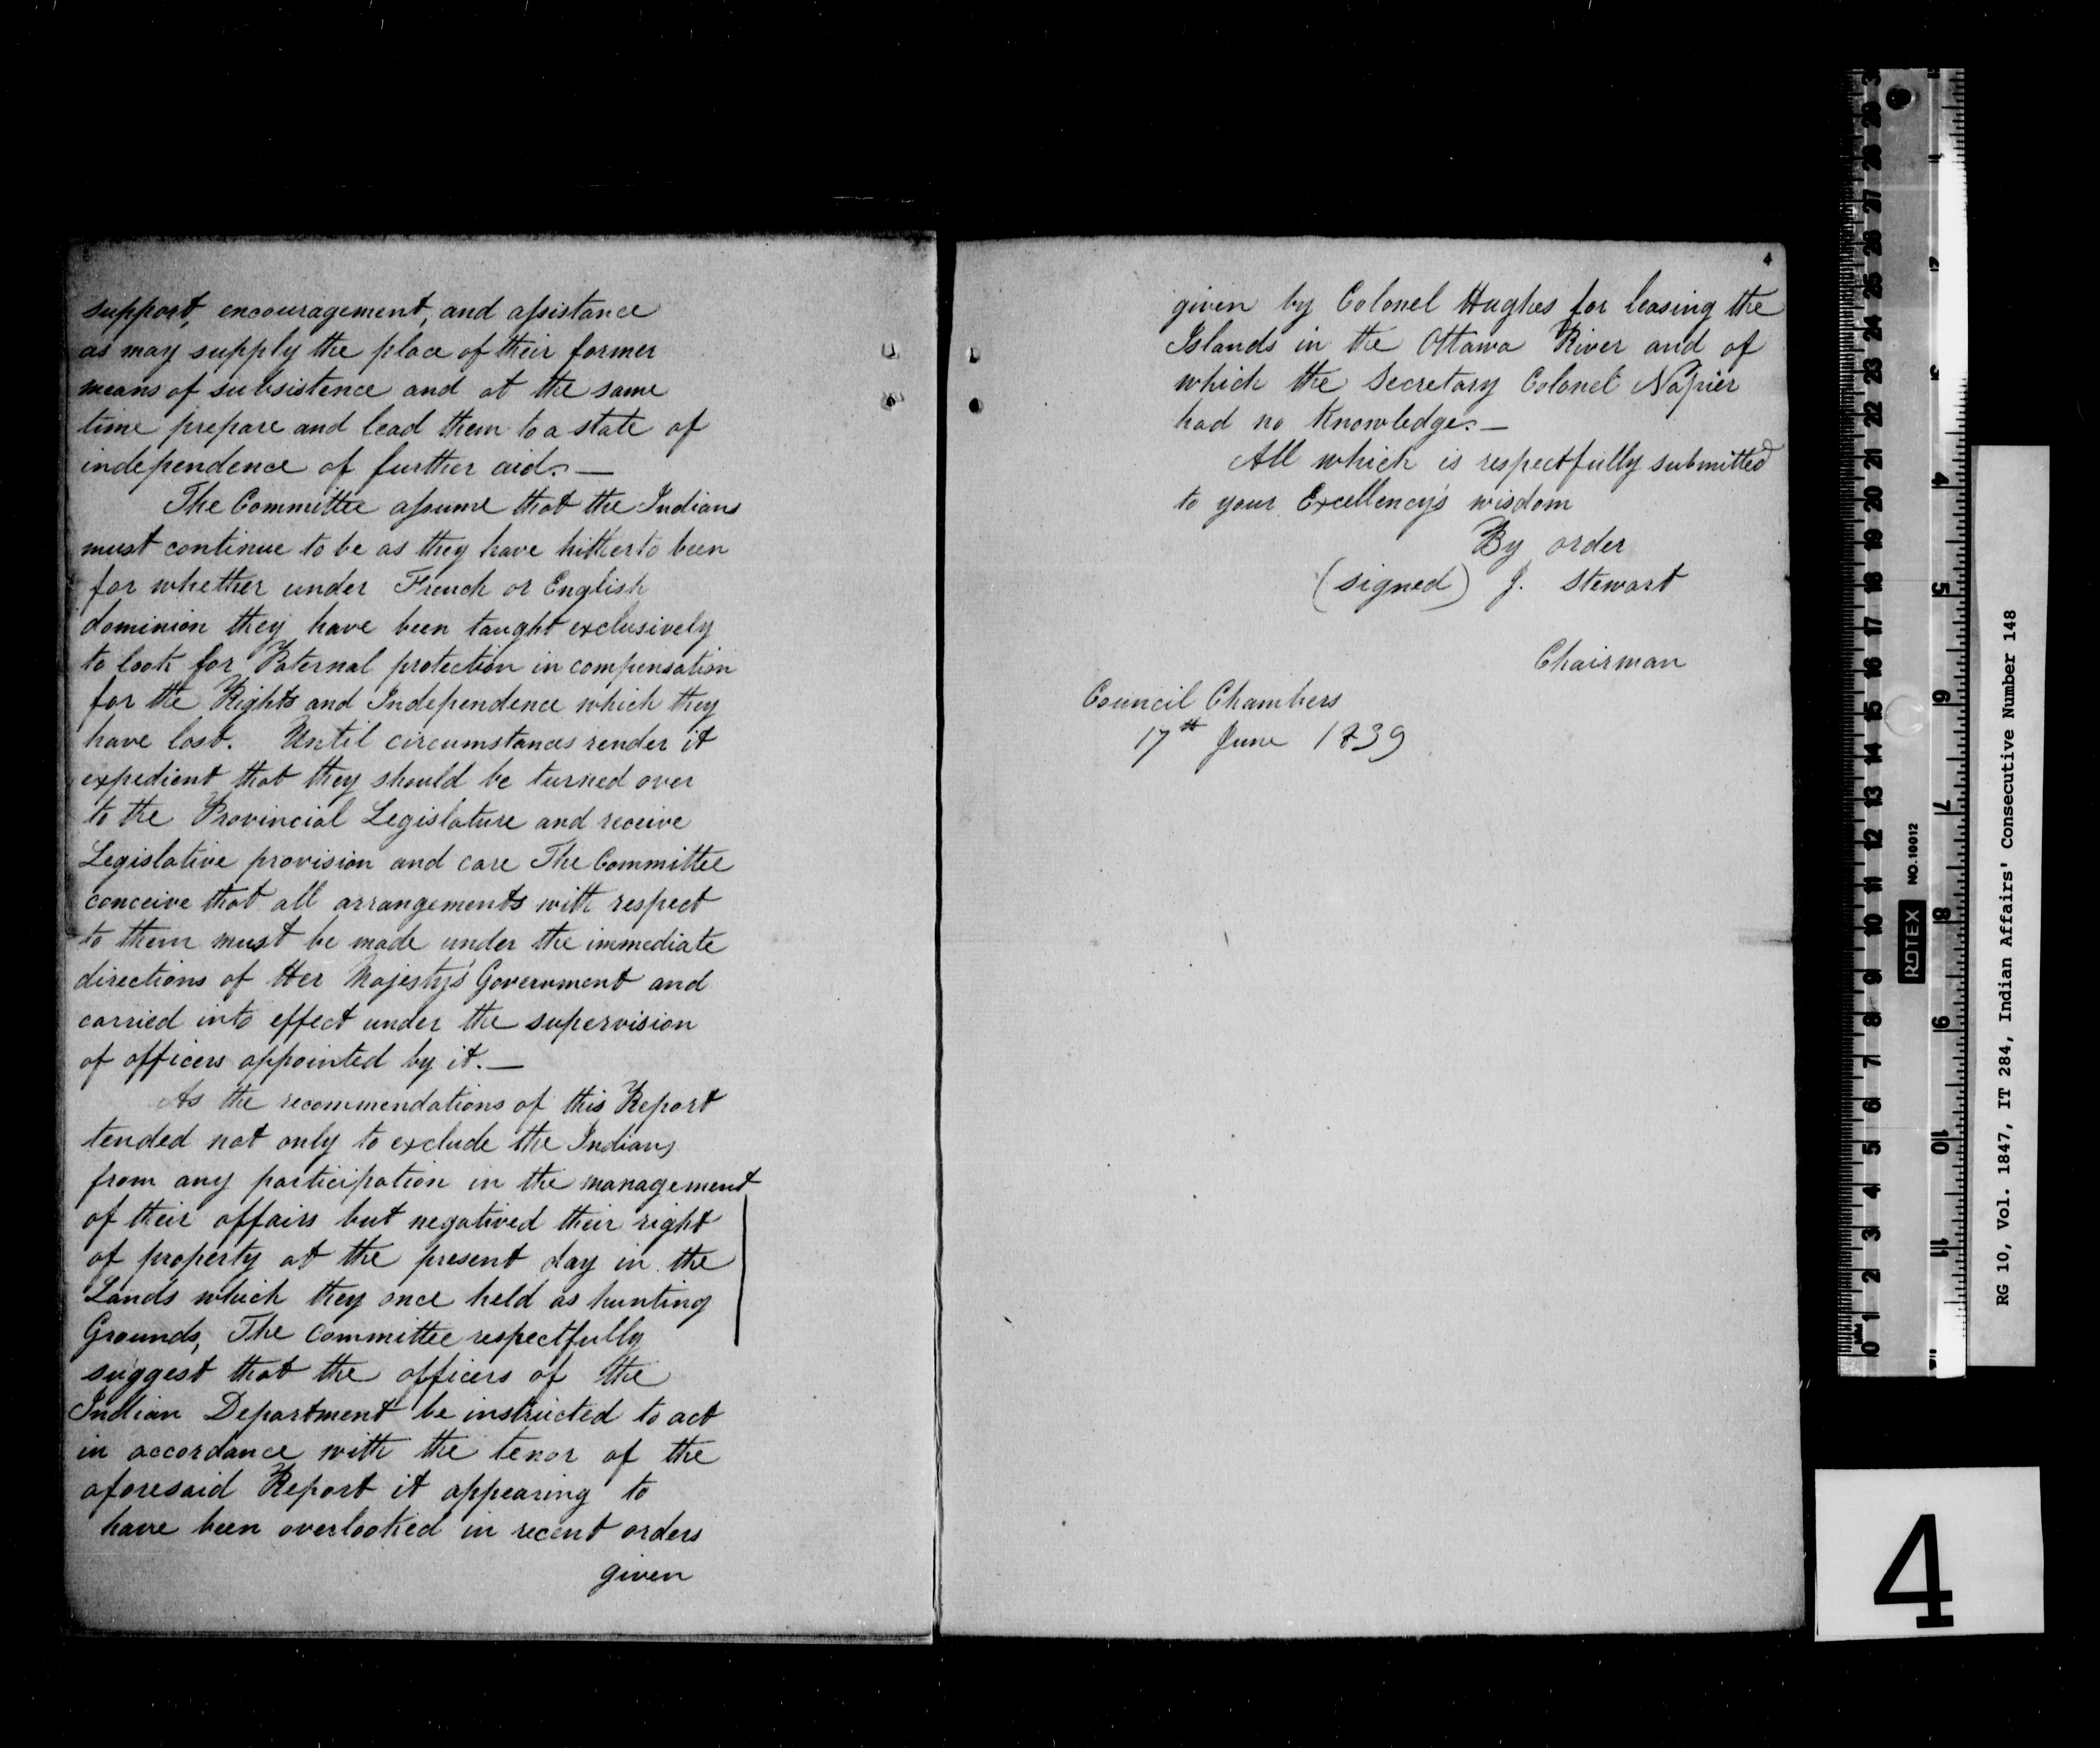 support, encouragement, and assistance
as may supply the place of their former
means of subsistence and at the same
time prepare and lead them to a state of
independence of further aid. —
The Committee assume that the Indians
must continue to be as they have hitherto been
for whether under French or English
dominion they have been taught exclusively
to look for Paternal protection in compensation
for the Rights and Independence which they
have lost. Until circumstances render it
expedient that they should be turned over
to the Provincial Legislature and receive
Legislative provision and care The Committee
conceive that all arrangements with respect
to them must be made under the immediate
directions of Her Majesty's Government and
carried into effect under the supervision
of officers appointed by it. —
As the recommendations of this Report
tended not only to exclude the Indians
from any participation in the management
of their affairs but negatived their right
of property at the present day in the
Lands which they once held as hunting
Grounds, The Committee respectfully
suggest that the officers of the
Indian Department be instructed to act
in accordance with the tenor of the
aforesaid Report it appearing to
have been overlooked in recent orders
given
4
given by Colonel Hughes for leasing the
Islands in the Ottawa River and of
which the Secretary Colonel Napier
had no Knowledge. —
All which is respectfully submitted
to your Excellency's wisdom
By order
(signed) J. Stewart
Chairman
Council Chambers
17th June 1839
RG 10, Vol. 1847, IT 284, Indian Affairs' Consecutive Number 148
ROTEX NO.10012
0 1 2 3 4 5 6 7 8 9 10 11 12 13 14 15 16 17 18 19 20 21 22 23 24 25 26 27 28 29 3
1 2 3 4 5 6 7 8 9 10 11
4